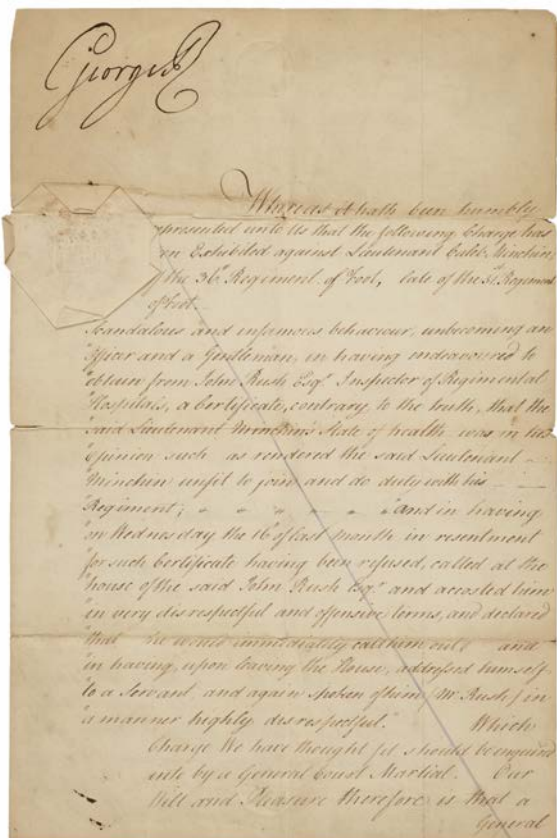 George R
Whereas it hath been humbly
represented unto Us that the following Charge has
been Exhibited against Lieutenant Caleb Minchin
of the 36th Regiment of Foot, late of the 51st Regiment
of Foot
"Scandalous and infamous behaviour, unbecoming an
"Officer and a Gentleman, in having endeavoured to
"obtain from John Rush Esqr. Inspector of Regimental
"Hospitals, a Certificate, contrary to the truth, that the
"said Lieutenant Minchin's State of health was in his
"Opinion such as rendered the said Lieutenant
"Minchin unfit to join and do duty with his
"Regiment; " " " " " "And in having
"on Wednesday the 16th of last Month in resentment
"for such Certificate having been refused, called at the
"house of the said John Rush Esqr. and accosted him
"in very disrespectful and offensive terms, and declared
"that he would immediately call him out; and
"in having, upon leaving the House, addressed himself
"to a Servant and again spoken of him (Mr. Rush) in
"a manner highly disrespectful." Which
Charge We have thought fit should be enquired
into by a General Court Martial. Our
Will and Pleasure therefore is that a
General